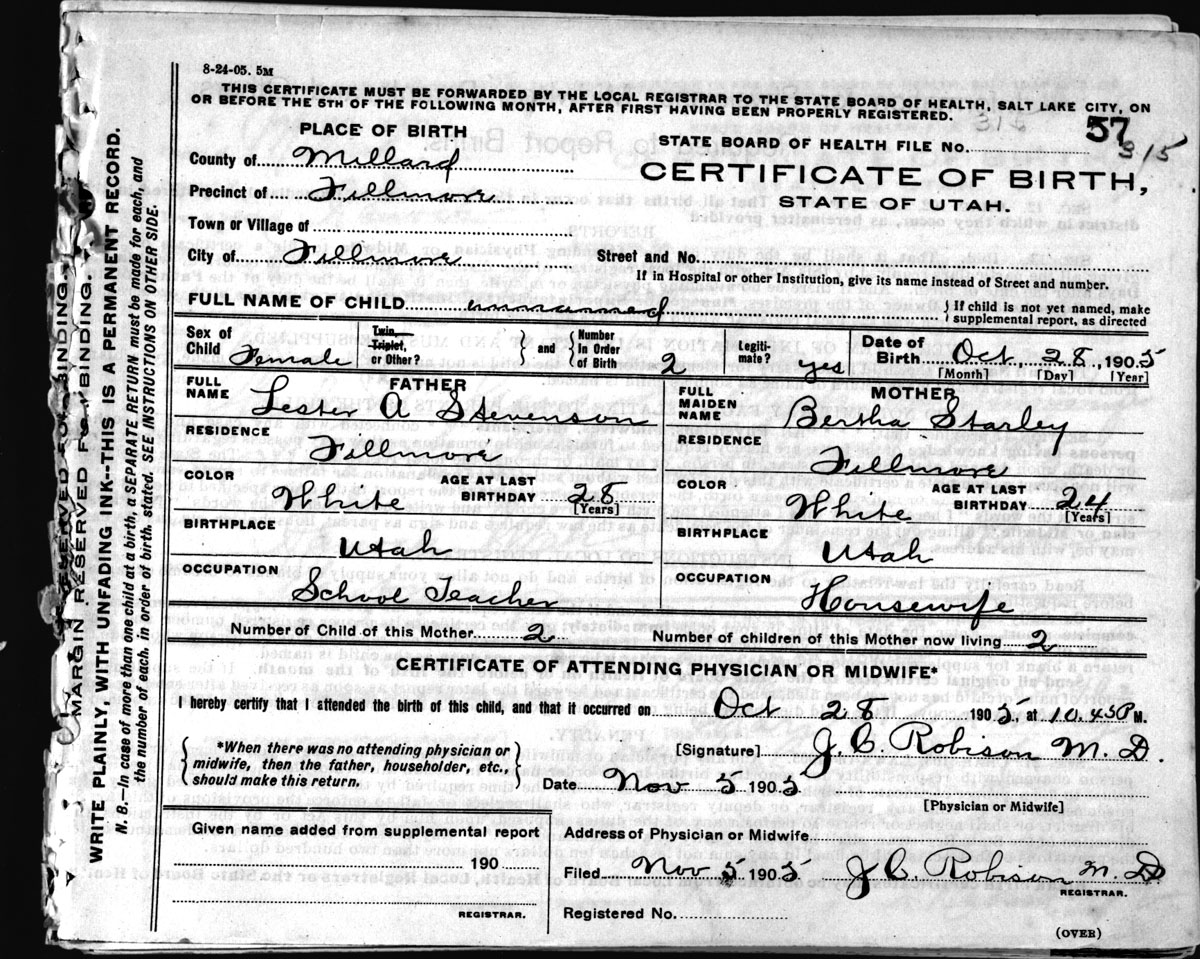 8-24-05. 5M
THIS CERTIFICATE MUST BE FORWARDED BY THE LOCAL REGISTRAR TO THE STATE BOARD OF HEALTH, SALT LAKE CITY, ON
OR BEFORE THE 5TH OF THE FOLLOWING MONTH, AFTER FIRST HAVING BEEN PROPERLY REGISTERED.
315
PLACE OF BIRTH
STATE BOARD OF HEALTH FILE NO. 57
315
County of Millard
CERTIFICATE OF BIRTH,
Precinct of Fillmore
STATE OF UTAH.
Town or Village of
City of Fillmore Street and No.
If in Hospital or other Institution, give its name instead of Street and number.
FULL NAME OF CHILD unnamed } If child is not yet named, make
supplemental report, as directed
Sex of Child Female Twin, Triplet, or Other? } and { Number In Order of Birth 2 Legiti-mate? yes Date of Birth Oct 28, 1905
[Month] [Day] [Year]
FATHER
FULL NAME Lester A Stevenson
RESIDENCE
Fillmore
COLOR White AGE AT LAST BIRTHDAY 28
[Years]
BIRTHPLACE
Utah
OCCUPATION
School Teacher
MOTHER
FULL MAIDEN NAME Bertha Starley
RESIDENCE
Fillmore
COLOR White AGE AT LAST BIRTHDAY 24
[Years]
BIRTHPLACE
Utah
OCCUPATION
Housewife
Number of Child of this Mother 2 Number of children of this Mother now living 2
CERTIFICATE OF ATTENDING PHYSICIAN OR MIDWIFE*
I hereby certify that I attended the birth of this child, and that it occurred on Oct 28 1905, at 10.45P M.
{ *When there was no attending physician or
midwife, then the father, householder, etc.,
should make this return. }
[Signature] J. C. Robison M. D.
Date Nov 5 1905
[Physician or Midwife]
Given name added from supplemental report
190
REGISTRAR.
Address of Physician or Midwife
Filed Nov 5 1905 J C Robison M. D
REGISTRAR.
Registered No.
(OVER)
MARGIN RESERVED FOR BINDING.
WRITE PLAINLY, WITH UNFADING INK--THIS IS A PERMANENT RECORD.
N. B.—In case of more than one child at a birth, a SEPARATE RETURN must be made for each, and
the number of each, in order of birth, stated. SEE INSTRUCTIONS ON OTHER SIDE.